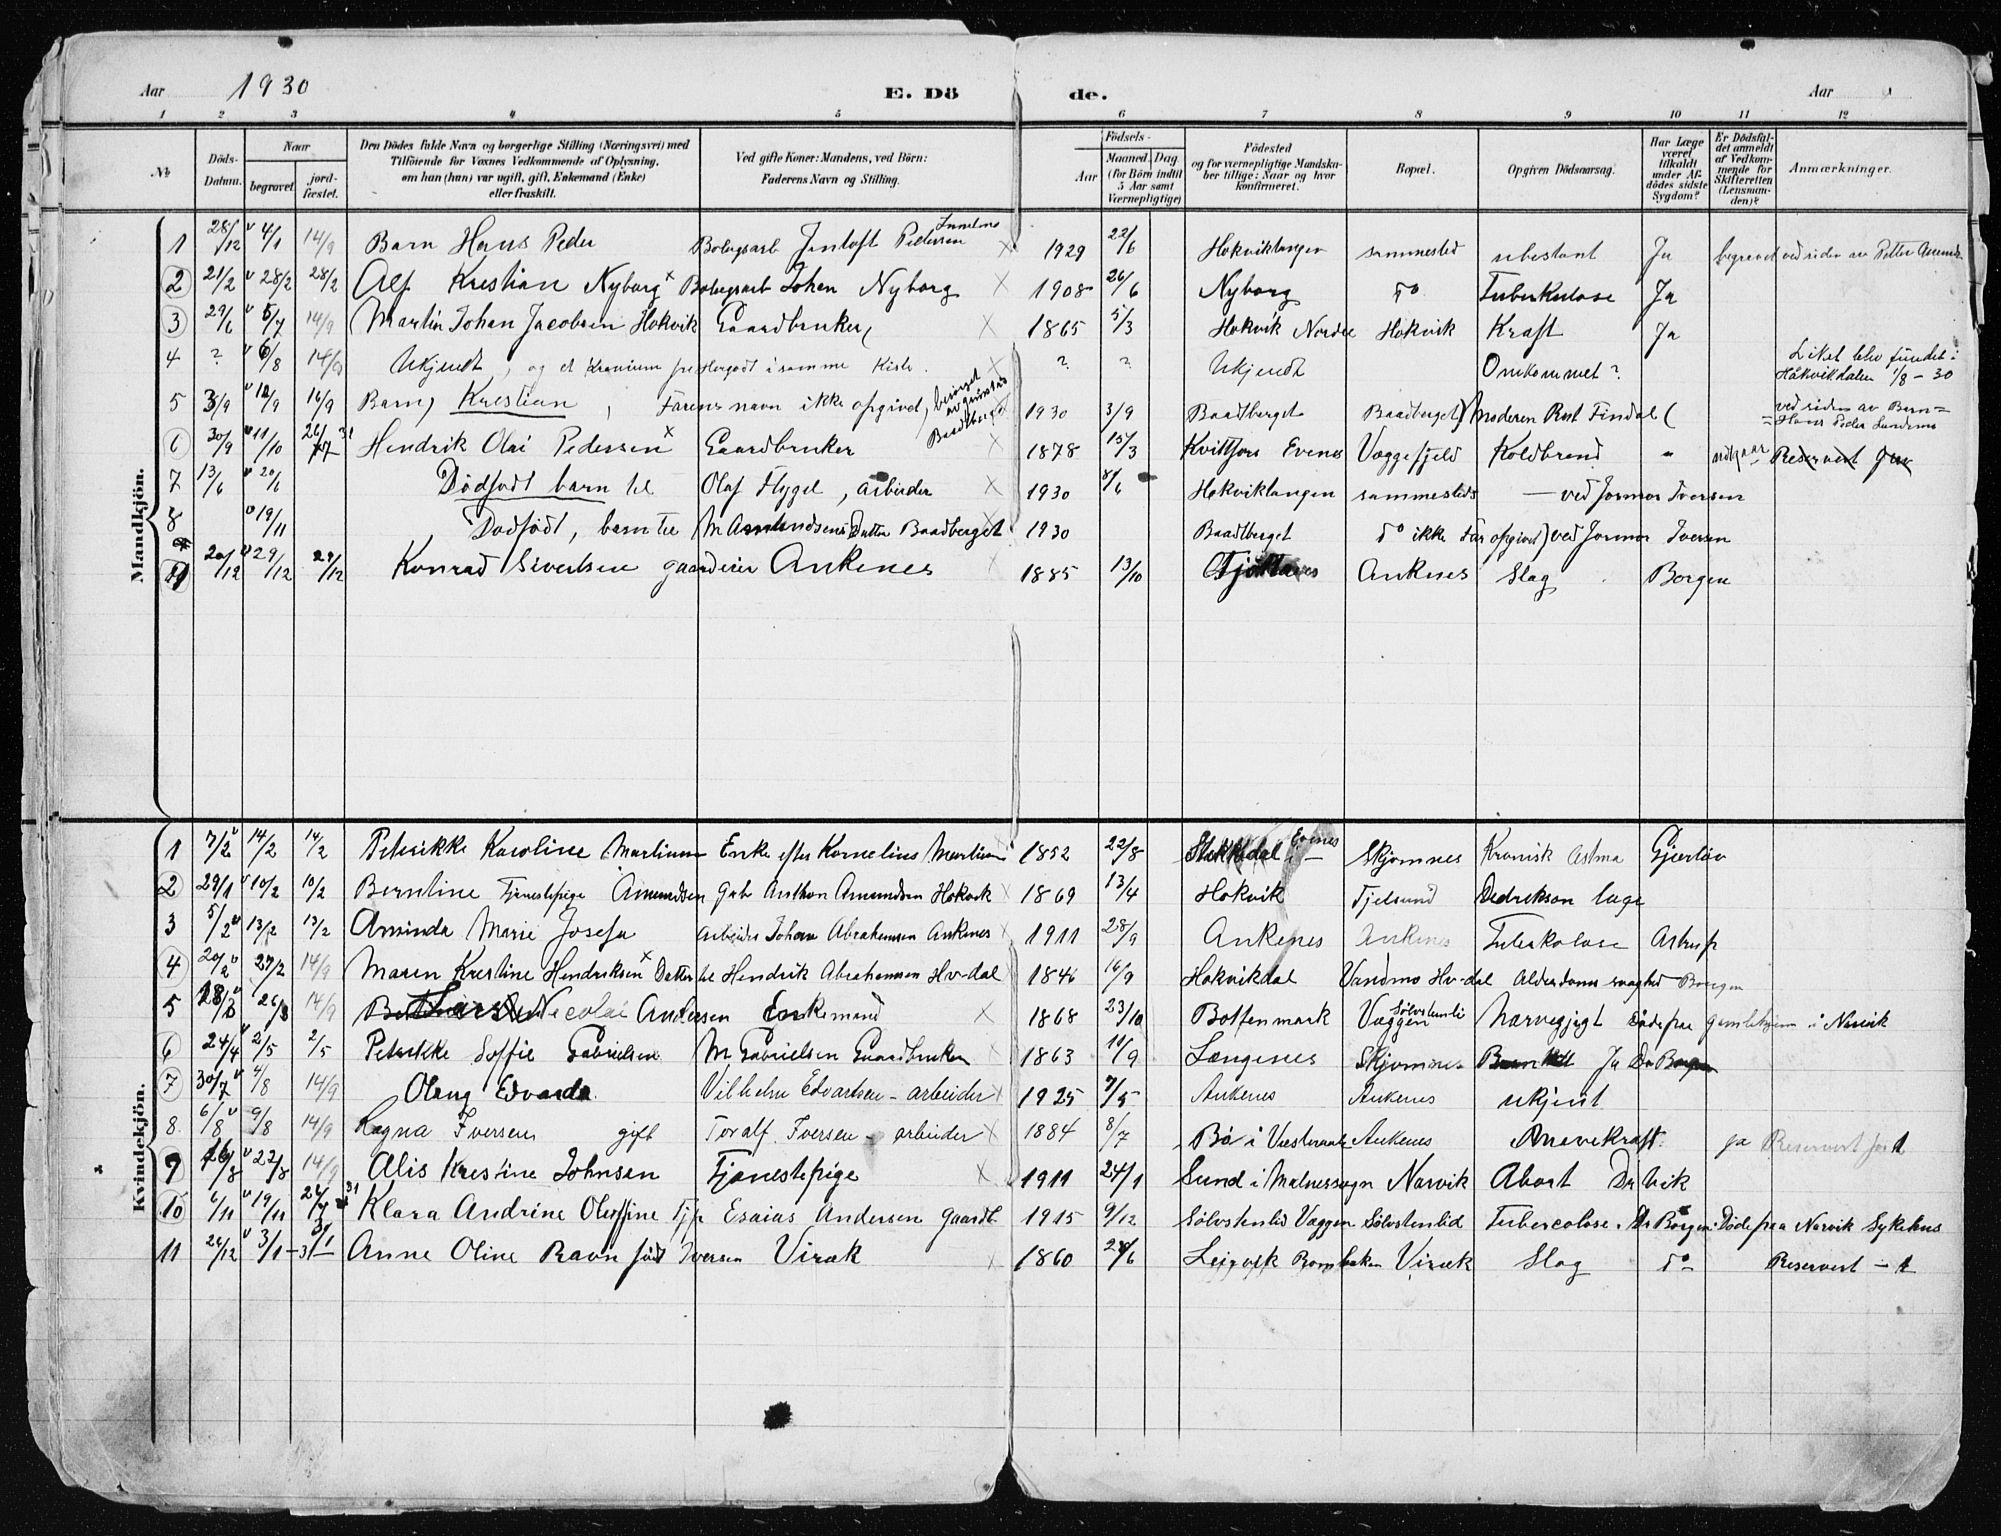 Aar 1930 E. Dö de. Aar
1 2 3 4 5 6 7 8 9 10 11 12
No. Döds-Datum. Naar begravet. jord-fæstet. Den Dödes fulde Navn og borgerlige Stilling (Næringsvei) med Tilföiende for Voxnes Vedkommende af Oplysning, om han (hun) var ugift, gift, Enkemand (Enke) eller fraskilt. Ved gifte Koner: Mandens, ved Börn: Faderens Navn og Stilling. Födsels- Aar Maaned. Dag. (for Börn indtil 5 Aar samt Værnepligtige) Födested og for værnepligtige Mandskaber tillige: Naar og hvor konfirmeret. Bopæl. Opgiven Dödsaarsag. Har Læge været tilkaldt under Afdödes sidste Sygdom? Er Dödsfaldet anmeldt af Vedkommende for Skifteretten (Lensmanden)? Anmærkninger.
Mandkjön.
1 28/12 4/1 14/9 Barn Hans Peder Bolagsarb Jentoft Pedersen 1929 22/6 Hokviklangen sammested ubestant Ja begravet ved siden av Petter
2 21/2 28/2 28/2 Alf Kristian Nyborg Bolagsarb Johan Nyborg 1908 26/6 Nyborg do Tuberkulose Ja
3 29/6 5/7 14/9 Martin Johan Jacobsen Hokvik Gaardbruker 1865 5/3 Hokvik Nordre Hokvik Kraft Ja
4 ? 6/8 14/9 Ukjendt, og et Kranium i samme Kiste. ? ? Ukjendt Omkommet? Liket blev fundet i Håkvikdalen 1/8-30
5 3/9 12/9 16/9 Barn, Kristian, Farens navn ikke opgivet, Baadberget 1930 3/9 Baadberget Baadberget Moderen Rut Findal ved siden av Barn Hans Peder
6 30/9 11/10 26/7 31 Hendrik Olai Pedersen Gaardbruker 1878 15/3 Kvitfors Evenes Væggefjeld Koldbrand " Reservert
7 13/6 20/6 Dödfødt barn til Olaf Flygel, arbeider 1930 8/6 Hokviklangen sammesteds — ved Jormor Iversen
8 19/11 Dødfødt, barn til M Amundsens Datter Baadberget 1930 Baadberget do ikke Far opgivet) ved Jormor Iversen
9 20/12 29/12 29/12 Konrad Sivertsen gaardeier Ankenes 1885 13/10 Ankenes Slag Borgen
Kvindekjön.
1 7/2 14/2 14/2 Petrikke Karoline Martinsen Enke efter Kornelius Martinsen 1852 22/8 Evenes Skjomnes Kronisk Astma Gjerløv
2 29/1 10/2 10/2 Berntine Tjenestepige Amundsen Gabr Anthon Amundsen Hokvik 1869 13/4 Hokvik Tjelsund Dedrikson læge
3 5/2 13/2 13/2 Aminda Marie Josefa Arbeider Johan Abrahamsen Ankenes 1911 28/9 Ankenes Ankenes Tuberkolose Astrup
4 20/2 27/2 14/9 Maren Kristine Hendriksen Datter til Hendrik Abrahamsen Hv-dal 1846 16/9 Hokvikdal Vandmo Hv-dal Alderdoms svaghed Borgen
5 18/3 26/3 14/9 Nicolai Andersen Enkemand 1868 23/10 Bottenmark Sölvstenli Væggen Narvegjigt Døde fra gamlehjem i Narvik
6 24/4 2/5 2/5 Petrikke Soffie Gabrielsen M Gabrielsen Gaardbruker 1863 11/9 Længenes Skjomnes Ja Dr Borgen
7 30/7 4/8 14/9 Olaug Edvarda Vilhelm Edvartsen - arbeider 1925 7/5 Ankenes Ankenes ukjent
8 6/8 9/8 14/9 Ragna Iversen gift Toralf Iversen - arbeider 1884 8/7 Bö i Vesteraalen Ankenes Mavekraft. ja Reservert
9 16/8 22/8 14/9 Alis Kristine Johnsen Tjenestepige 1911 24/1 Sund i Malnessogn Narvik Abort Dr Vik
10 6/11 19/11 26/7 31 Klara Andrine Oluffine Tjp Esaias Andersen Gaardb 1915 9/12 Sölvstenlid Væggen Sölvstenlid Tubercolose. Dr Borgen Döde fra Narvik Sykehus
11 26/12 3/1 - 31 Anne Oline Ravn född Iversen Viræk 1860 28/6 Leirvik Viræk Slag do Reservert